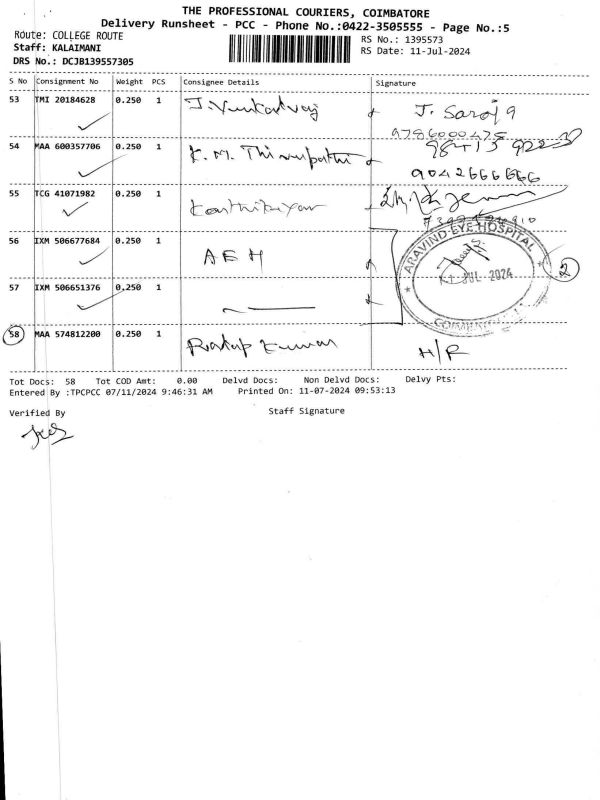 THE PROFESSIONAL COURIERS, COIMBATORE
Delivery Runsheet - PCC - Phone No.:0422-3505555 - Page No.:5
Route: COLLEGE ROUTE
RS No.: 1395573
Staff: KALAIMANI
RS Date: 11-Jul-2024
DRS No.: DCJB139557305
S No Consignment No Weight PCS Consignee Details Signature
53 TMI 20184628 0.250 1 J. Venkatraj J. Saroja
9786000475
54 MAA 600357706 0.250 1 K. M. Thirupathi
9042666666
55 TCG 41071982 0.250 1 Karthikeyan
56 IXM 506677684 0.250 1 AEH
ARAVIND EYE HOSPITAL
JUL 2024
2
57 IXM 506651376 0.250 1
58 MAA 574812200 0.250 1 Pratap Kumar H/R
Tot Docs: 58 Tot COD Amt: 0.00 Delvd Docs: Non Delvd Docs: Delvy Pts:
Entered By :TPCPCC 07/11/2024 9:46:31 AM Printed On: 11-07-2024 09:53:13
Verified By Staff Signature